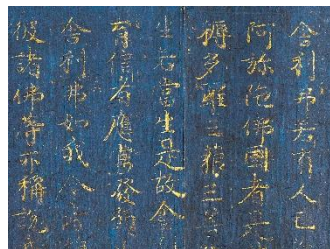 舍利弗若有人已
阿弥陀佛國者是
耨多羅三藐三
生若當生是故舍
有信者應當發
舍利弗如我今
彼諸佛等亦稱說